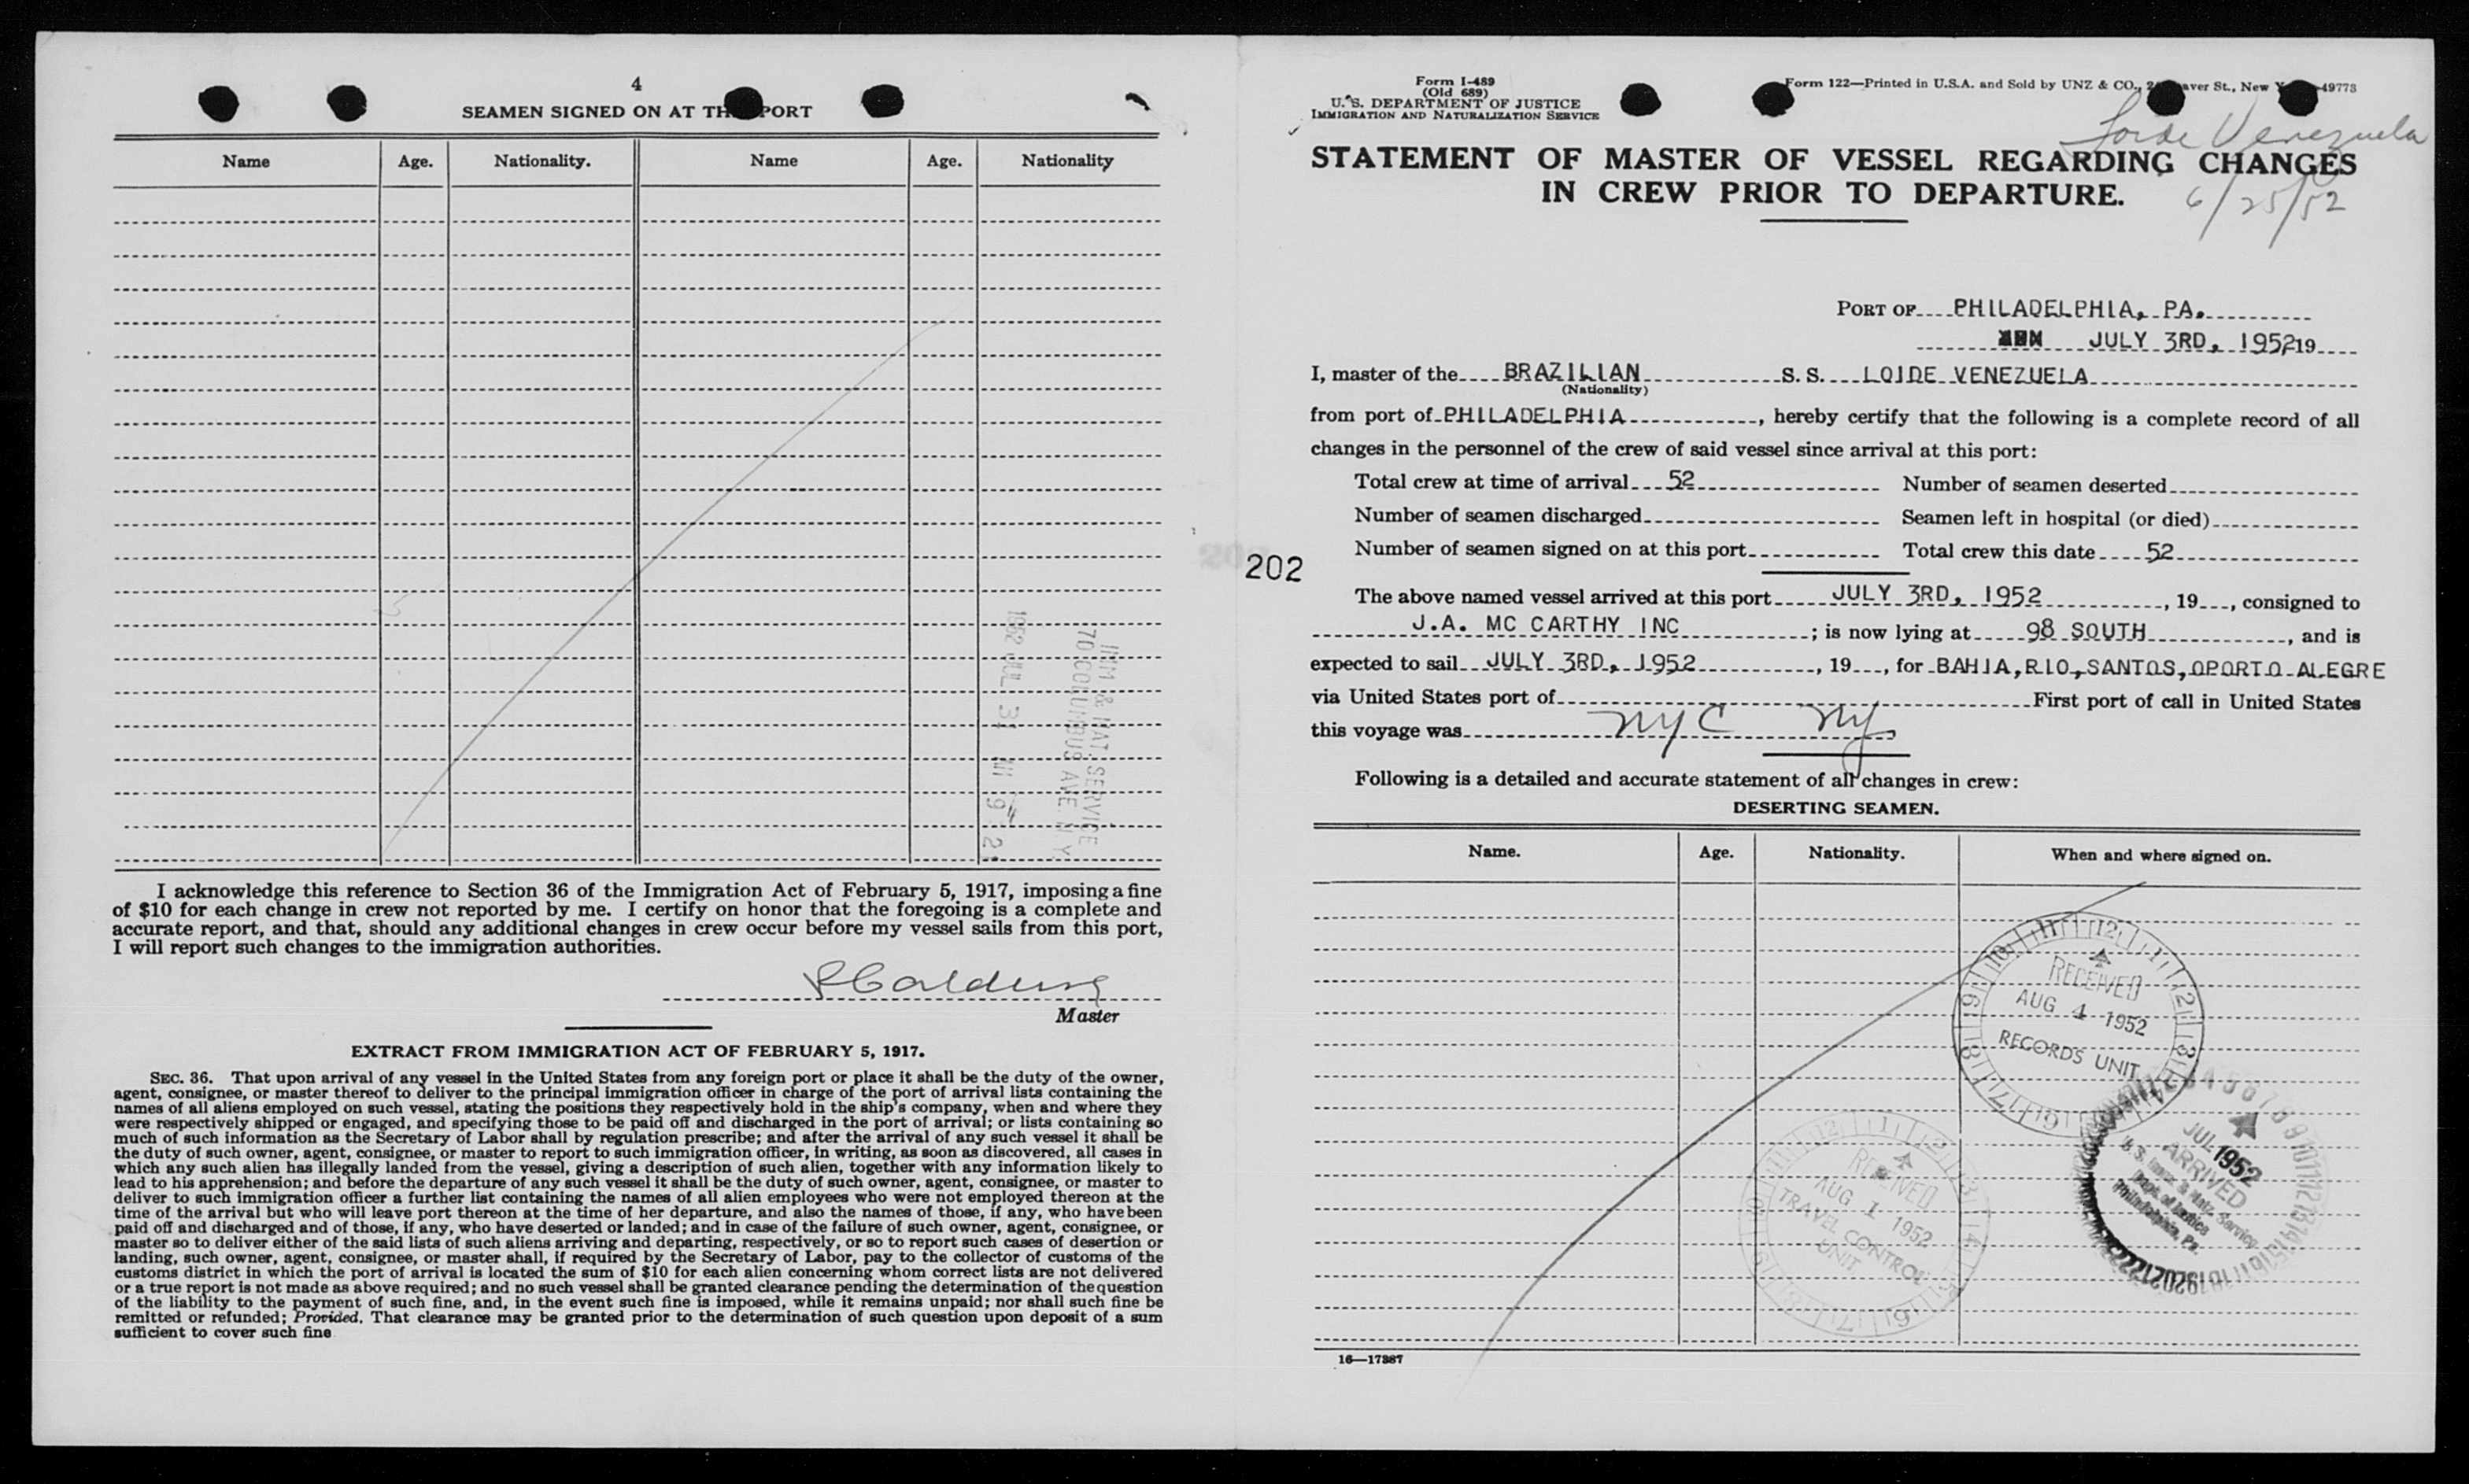 4
SEAMEN SIGNED ON AT TH PORT
Name Age. Nationality. Name Age. Nationality
1952 JUL 31 9 2
IMM & NAT. SERVICE
70 COLUMBUS AVE N Y
I acknowledge this reference to Section 36 of the Immigration Act of February 5, 1917, imposing a fine
of $10 for each change in crew not reported by me. I certify on honor that the foregoing is a complete and
accurate report, and that, should any additional changes in crew occur before my vessel sails from this port,
I will report such changes to the immigration authorities.
Master
EXTRACT FROM IMMIGRATION ACT OF FEBRUARY 5, 1917.
SEC. 36. That upon arrival of any vessel in the United States from any foreign port or place it shall be the duty of the owner,
agent, consignee, or master thereof to deliver to the principal immigration officer in charge of the port of arrival lists containing the
names of all aliens employed on such vessel, stating the positions they respectively hold in the ship's company, when and where they
were respectively shipped or engaged, and specifying those to be paid off and discharged in the port of arrival; or lists containing so
much of such information as the Secretary of Labor shall by regulation prescribe; and after the arrival of any such vessel it shall be
the duty of such owner, agent, consignee, or master to report to such immigration officer, in writing, as soon as discovered, all cases in
which any such alien has illegally landed from the vessel, giving a description of such alien, together with any information likely to
lead to his apprehension; and before the departure of any such vessel it shall be the duty of such owner, agent, consignee, or master to
deliver to such immigration officer a further list containing the names of all alien employees who were not employed thereon at the
time of the arrival but who will leave port thereon at the time of her departure, and also the names of those, if any, who have been
paid off and discharged and of those, if any, who have deserted or landed; and in case of the failure of such owner, agent, consignee, or
master so to deliver either of the said lists of such aliens arriving and departing, respectively, or so to report such cases of desertion or
landing, such owner, agent, consignee, or master shall, if required by the Secretary of Labor, pay to the collector of customs of the
customs district in which the port of arrival is located the sum of $10 for each alien concerning whom correct lists are not delivered
or a true report is not made as above required; and no such vessel shall be granted clearance pending the determination of the question
of the liability to the payment of such fine, and, in the event such fine is imposed, while it remains unpaid; nor shall such fine be
remitted or refunded; Provided, That clearance may be granted prior to the determination of such question upon deposit of a sum
sufficient to cover such fine
Form I-489
(Old 689)
U. S. DEPARTMENT OF JUSTICE
IMMIGRATION AND NATURALIZATION SERVICE
Form 122—Printed in U.S.A. and Sold by UNZ & CO., 2 aver St., New Y 49773
Loide Venezuela
STATEMENT OF MASTER OF VESSEL REGARDING CHANGES
IN CREW PRIOR TO DEPARTURE.
6/25/52
PORT OF PHILADELPHIA, PA.
JULY 3RD, 1952, 19
I, master of the BRAZILIAN S. S. LOIDE VENEZUELA
(Nationality)
from port of PHILADELPHIA, hereby certify that the following is a complete record of all
changes in the personnel of the crew of said vessel since arrival at this port:
Total crew at time of arrival 52 Number of seamen deserted
Number of seamen discharged Seamen left in hospital (or died)
Number of seamen signed on at this port Total crew this date 52
202
The above named vessel arrived at this port JULY 3RD, 1952, 19, consigned to
J.A. MC CARTHY INC; is now lying at 98 SOUTH, and is
expected to sail JULY 3RD, 1952, 19, for BAHIA, RIO, SANTOS, OPORTO ALEGRE
via United States port of First port of call in United States
this voyage was NYC NY
Following is a detailed and accurate statement of all changes in crew:
DESERTING SEAMEN.
Name. Age. Nationality. When and where signed on.
RECEIVED
AUG 4 1952
RECORDS UNIT
RECEIVED
AUG 1 1952
TRAVEL CONTROL
UNIT
JUL 1952
ARRIVED
U. S. Immz & Natz Service
Dept. of Justice
Philadelphia, Pa.
16—17387